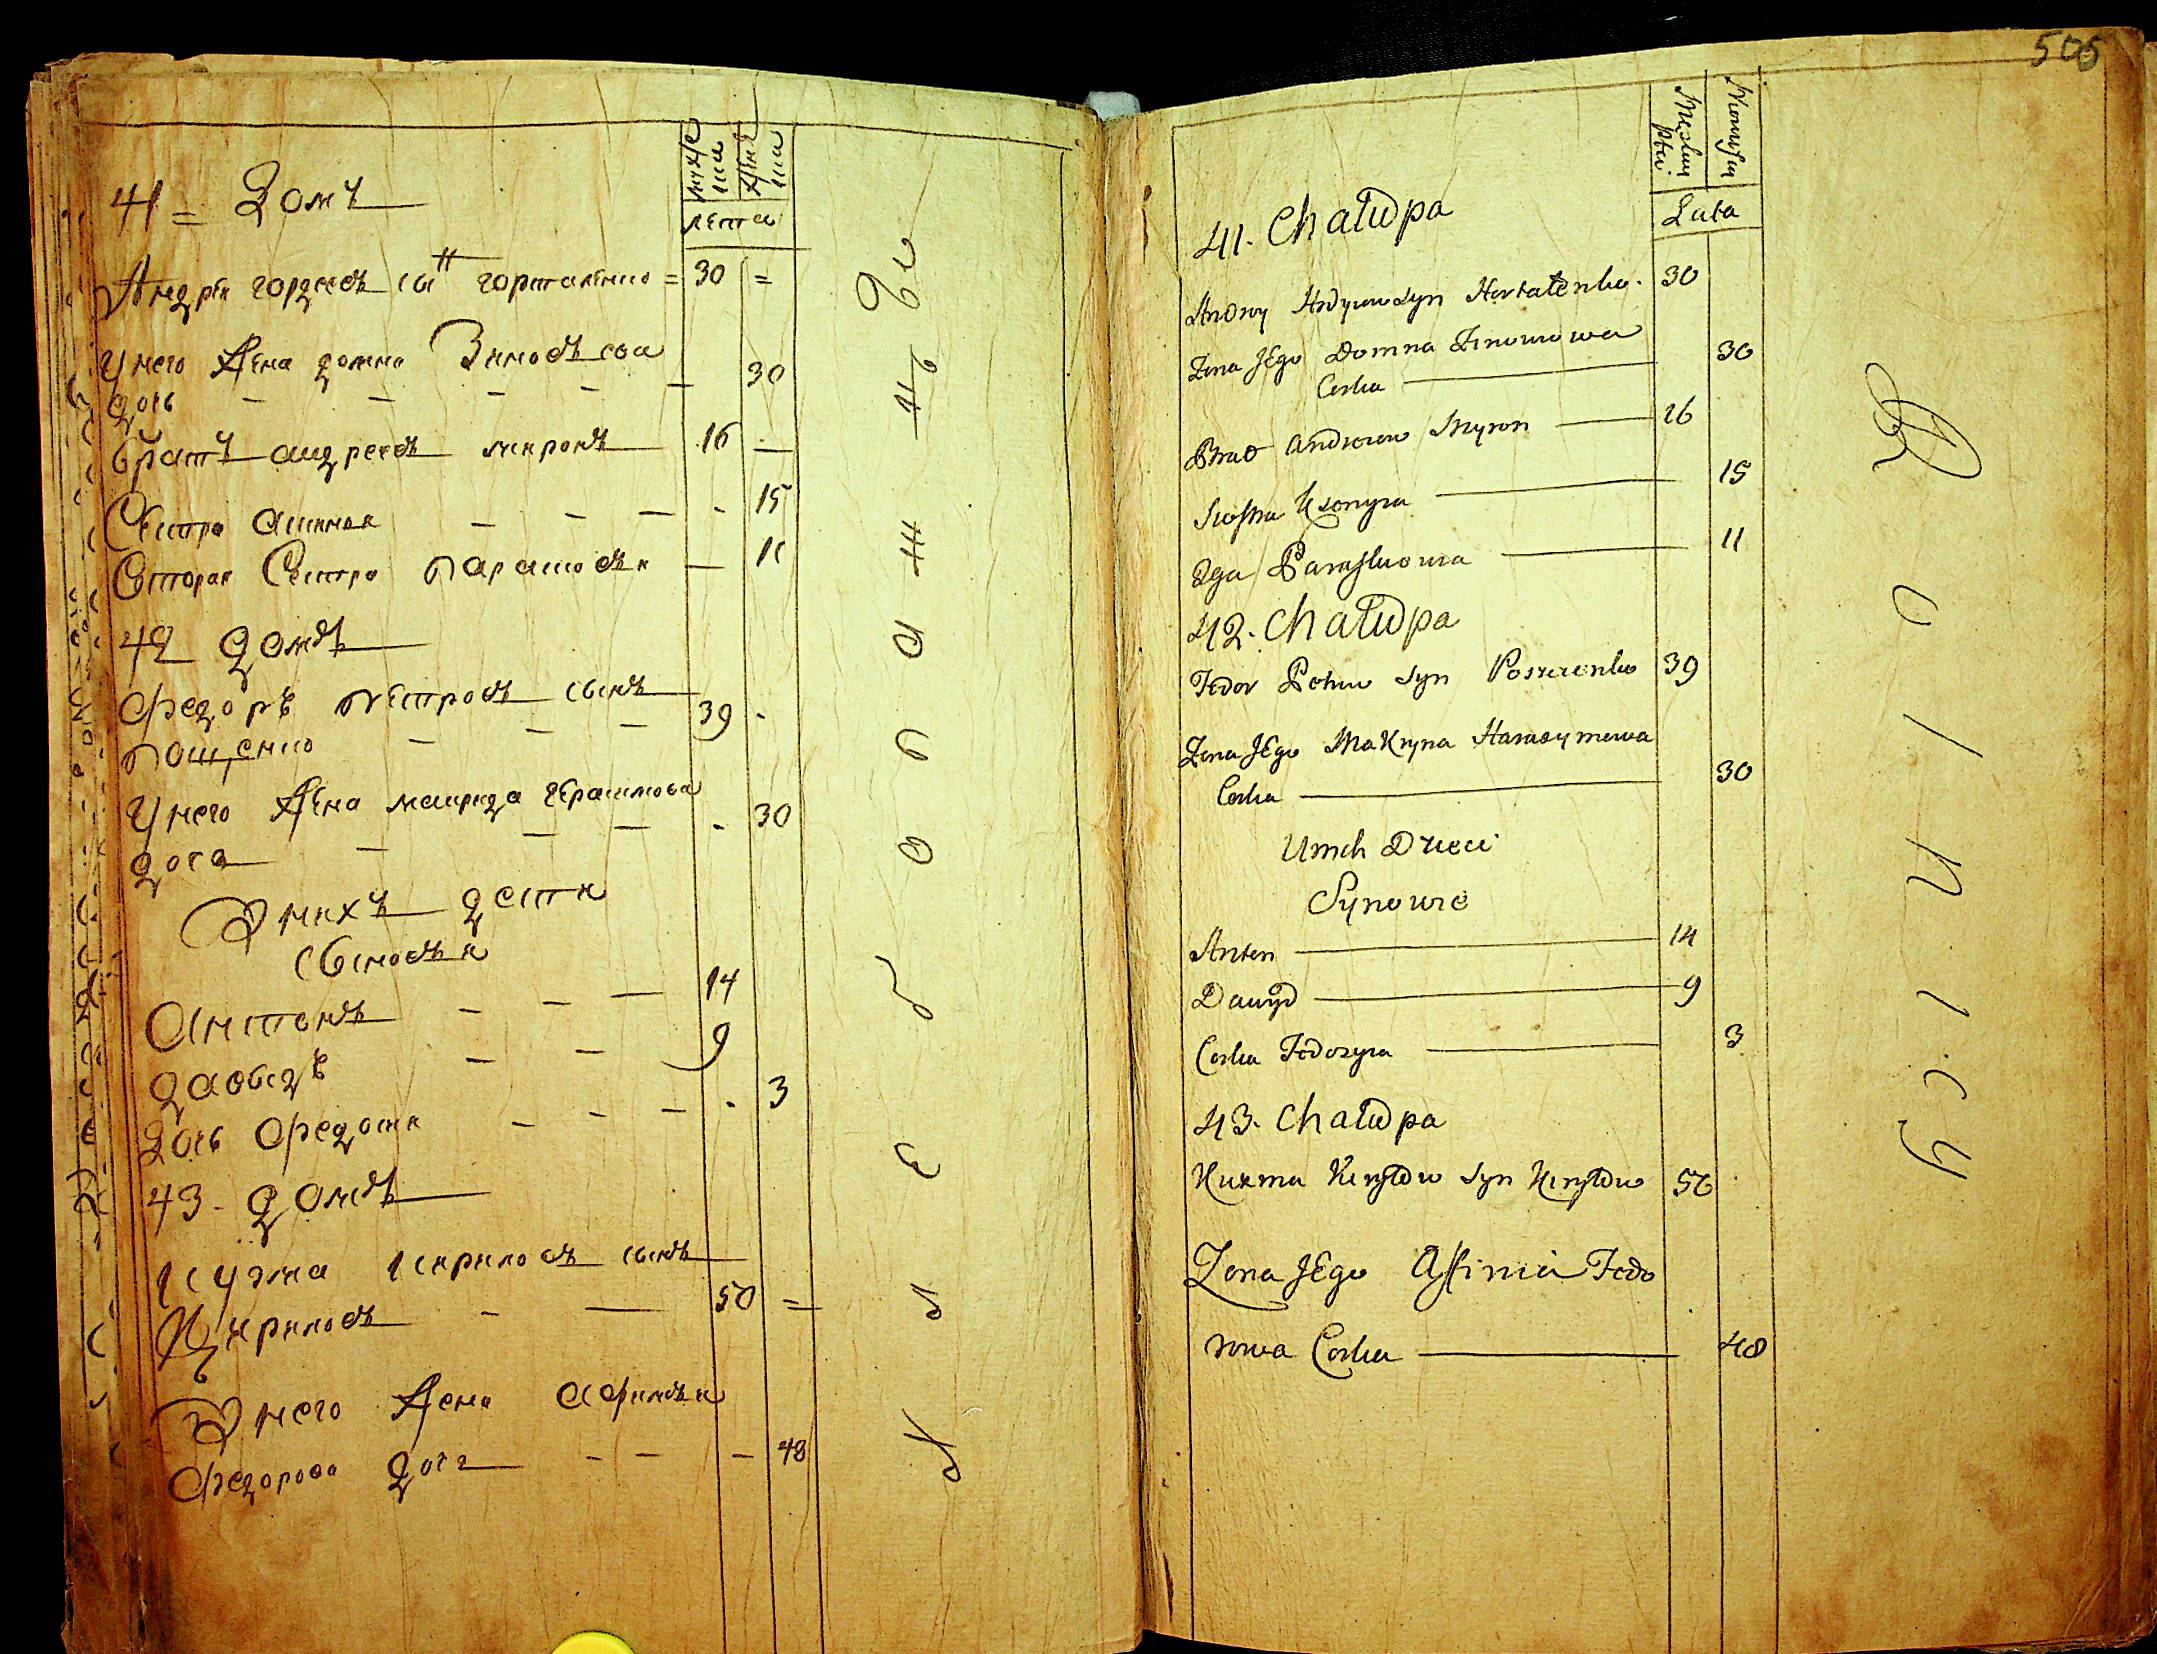 мужеска
женска
лета
41 = Домъ
Андрѣи гордѣевъ сынъ горталенко = 30 =
У него жена домна Зиновъева
дочь — — — — — 30
братъ андреевъ миронъ 16 —
Сестра аксиния — — — - 15
Вторая Сестра парасковѣя — 11
42 домъ
Федоръ петровъ сынъ
пощенко — — — 39 -
У него жена макрида герасимова
дочь — — — - 30
У нихъ дети
сыновѣя
Антонъ — — — 14
давыдъ — — 9
дочь федосия — — — - 3
43 - домъ
Кузма кириловъ сынъ
Кириловъ - — 50 =
У него жена афимѣя
федорова дочь — — — 48
Хлебопашцы
505
Męskiey płci
Niewiesey
Lata
41. Chałupa
Andrey Hordyiow Syn Hortalenko. 30
Zona JEgo Domna Zinowiowa
Corka 30
Brat Andreiow Myron 16
Siostra Xsenyia 15
2ga Paraskowia 11
42. Chałupa
Fedor Petrow Syn Poszczenko 39
Zona JEgo Makryna Harasymowa
Corka 30
U nich Dzieci
Synowie
Anton 14
Dawyd 9
Corka Fedosyia 3
43. Chałupa
Kuzma Kiryłow Syn Kiryłow 50
Zona JEgo Afimia Fedo
rowa Corka 48
Rolnicy